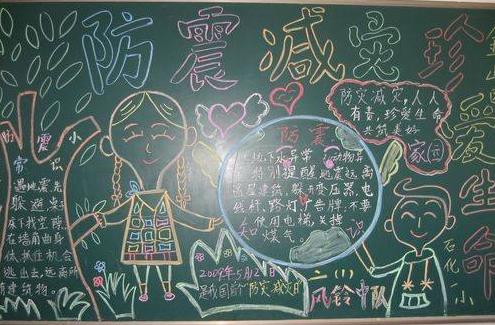 防震减灾 珍爱生命
防震小
常识
遇地震先
躲避桌
床下找空隙
在墙角曲身
低抓住机会
逃出去远离所
有建筑物。
防震
地下水异常 动物品
特别提醒 远震远离
高层建筑 躲开变压器电
线杆,路灯广告牌,不要
使用电梯,关掉
煤气。
防灾减灾,人人
有责,珍爱生命
共筑美好
家园
2009年5月12日
是我国首个“防灾减灾日”
六(1)
风铃中队
石化一小